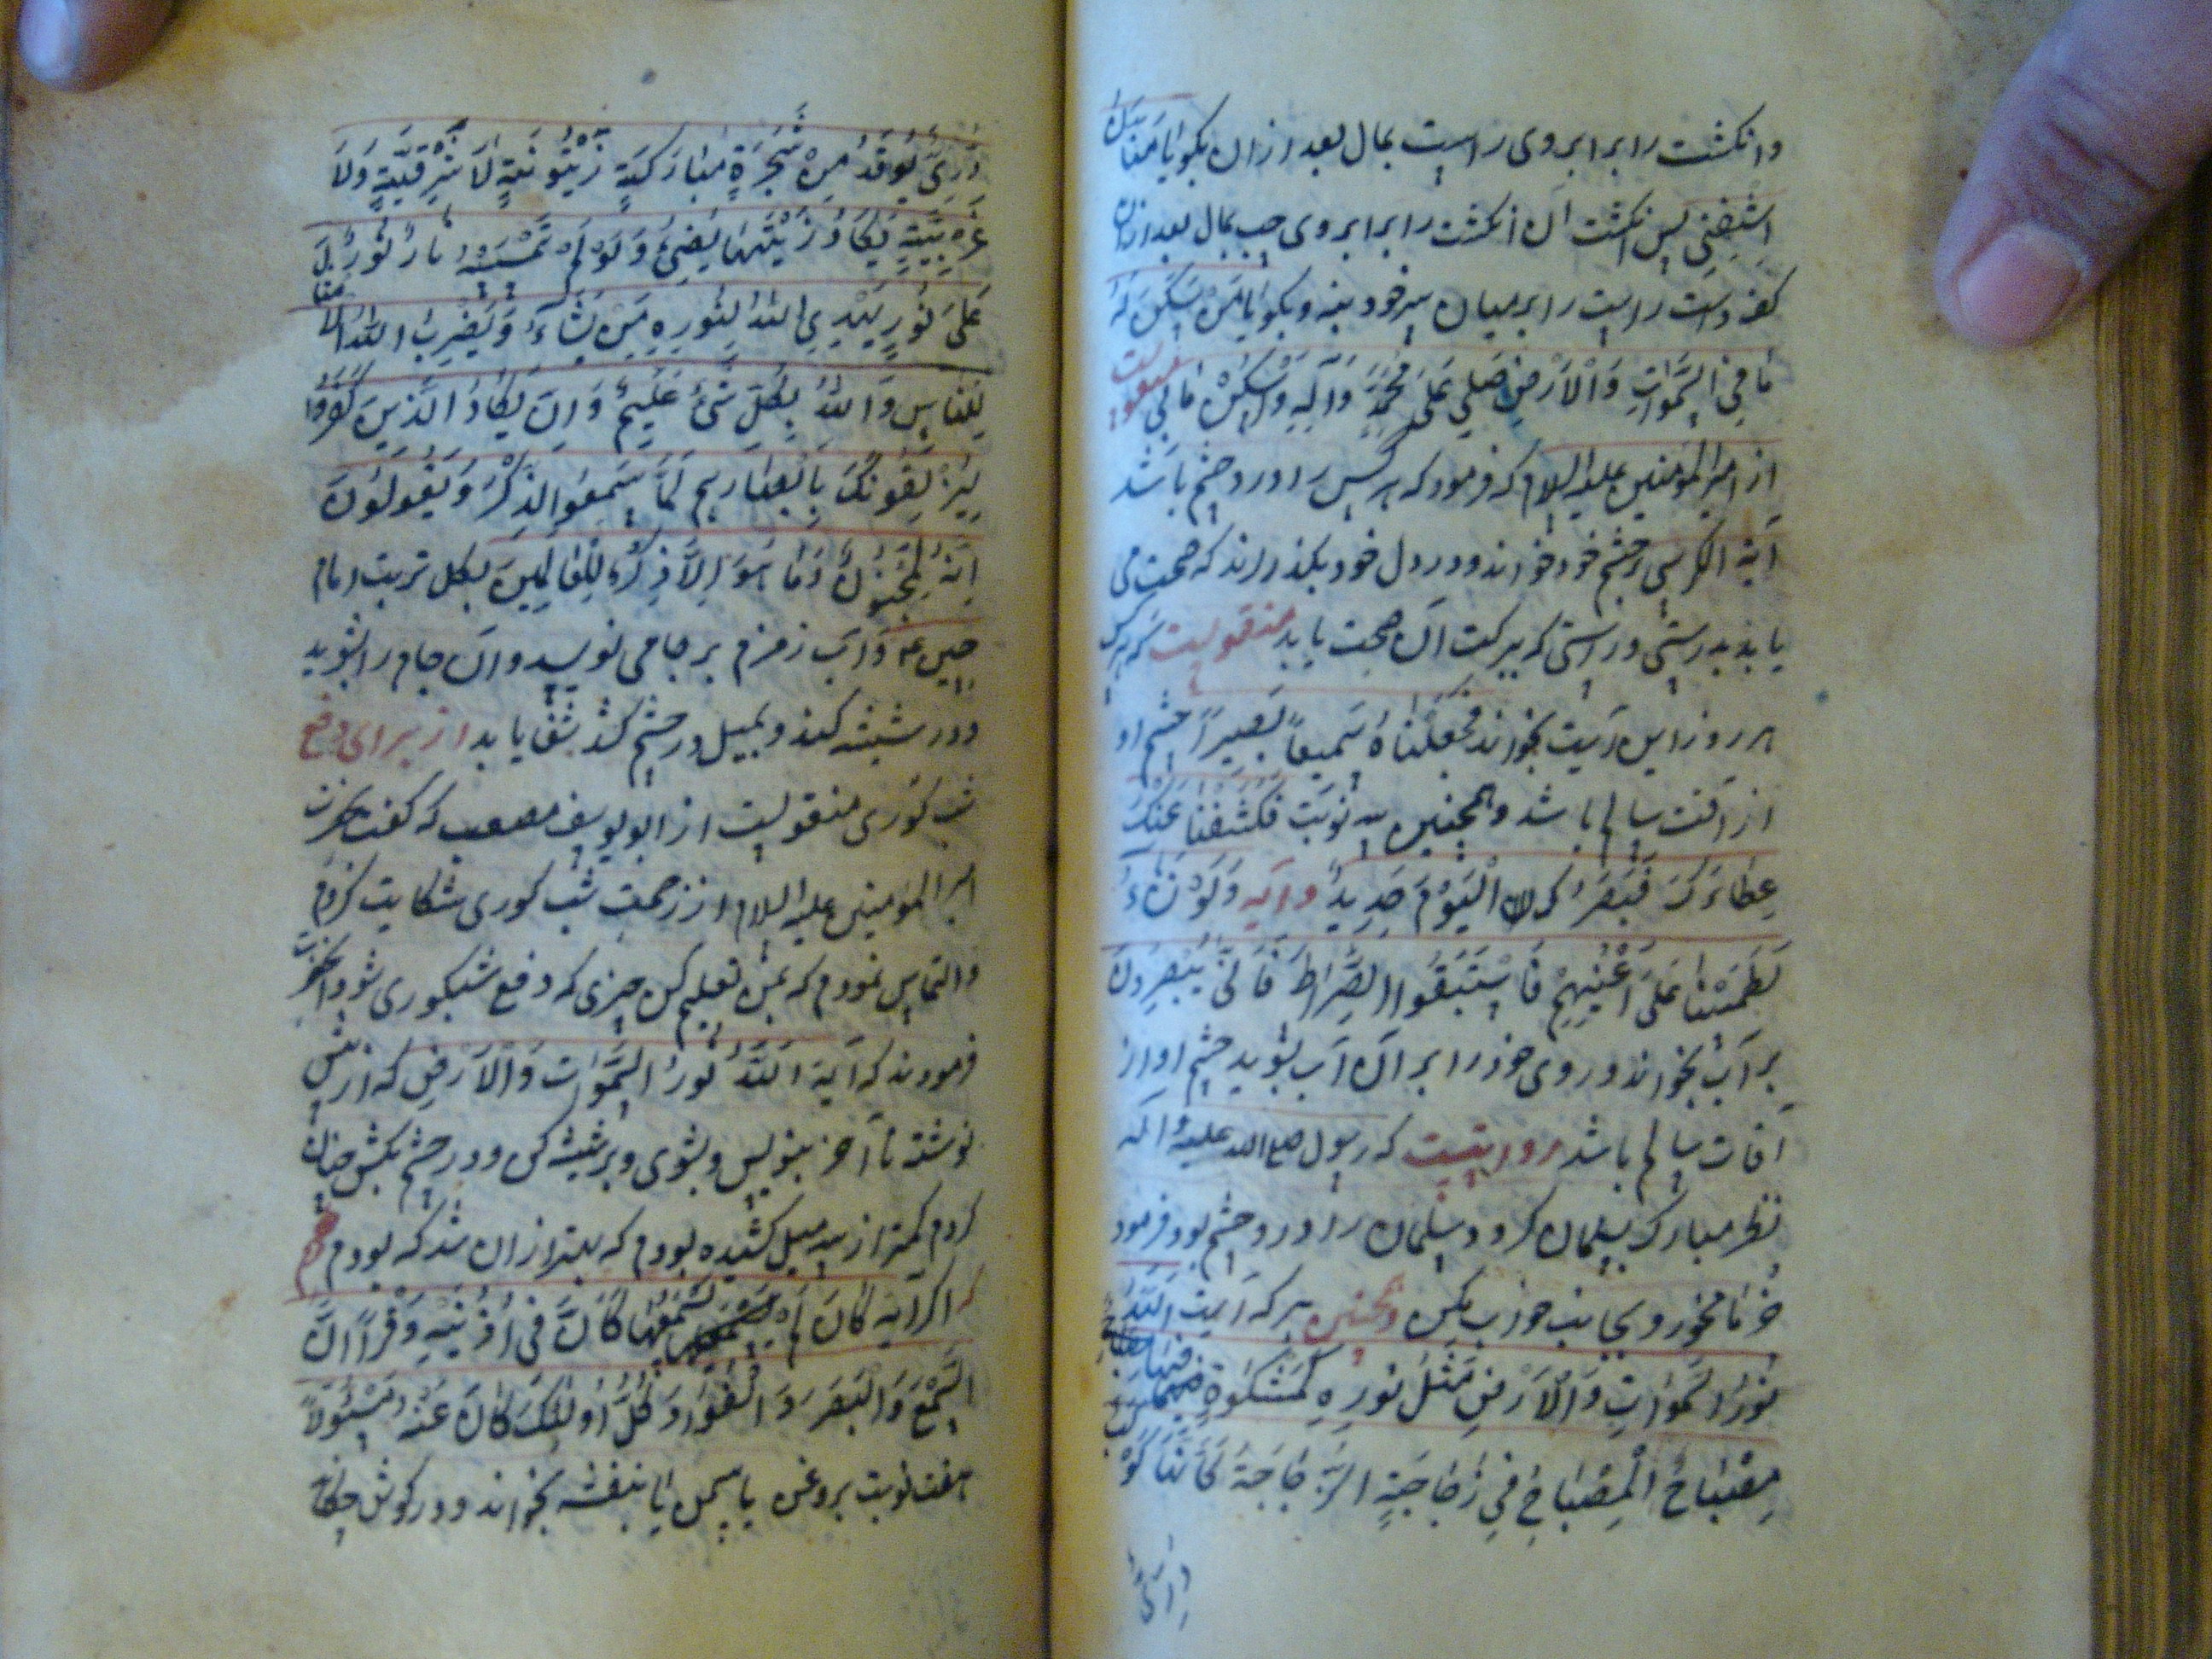 وانکشت را بر ابروی راست بمال بعد از ان بکو یا
اشفنی پس انکشت ان انکشت را بر ابروی چپ بمال بعد ازان
کف دست راست را بر میان سر خود بنه و بکو یا من سکن له
ما فی السَّمٰوَاتِ وَالْاَرْضِ صَلِّ عَلیٰ مُحَمَّدٍ وَآلِهِ وَسَکِّنْ مٰا بِی منقولست
از امیر المؤمنین علیه السلام که فرمود که هر کس را درد چشم باشد
آیة الکرسی بر چشم خود خواند و در دل خود بکذراند که صحت می
یابد بدرستی و راستی که ببرکت آن صحت یابد منقولست که هر کس
هر روز این آیت بخواند فَجَعَلْنٰاهُ سَمِیعاً بَصِیراً چشم او
از آفت سالم باشد و همچنین سه نوبت فَکَشَفْنٰا عَنْکَ
غِطٰاءَکَ فَبَصَرُکَ الْیَوْمَ حَدِیدٌ و آیه وَلَوْ نَشٰاءُ
لَطَمَسْنٰا عَلیٰ اَعْیُنِهِمْ فَاسْتَبَقُوا الصِّرٰاطَ فَاَنّیٰ یُبْصِرُونَ
بر آب بخواند و روی خود را بر آن آب بشوید چشم او از
آفات سالم باشد روایتست که رسول صلی الله علیه و آله
نظر مبارک بسلمان کرد و سلمان را درد چشم بود فرمود
خرما مخور و بجانب خواب مکن و همچنین هر که آیت اَللّٰهُ
نُورُ السَّمٰوٰاتِ وَالْاَرْضِ مَثَلُ نُورِهِ کَمِشْکٰوةٍ فِیهٰا
مِصْبٰاحٌ الْمِصْبٰاحُ فِی زُجٰاجَةٍ اَلزُّجٰاجَةُ کَاَنَّهٰا کَوْ
دُرِّیٌّ
دُرِّیٌّ یُوقَدُ مِنْ شَجَرَةٍ مُبٰارَکَةٍ زَیْتُونَةٍ لٰا شَرْقِیَّةٍ وَلٰا
غَرْبِیَّةٍ یَکٰادُ زَیْتُهٰا یُضِیءُ وَلَوْ لَمْ تَمْسَسْهُ نٰارٌ نُورٌ
عَلیٰ نُورٍ یَهْدِی اللّٰهُ لِنُورِهِ مَنْ یَشٰاءُ وَیَضْرِبُ اللّٰهُ الْاَمْثٰالَ
لِلنّٰاسِ وَاللّٰهُ بِکُلِّ شَیْءٍ عَلِیمٌ وَاِنْ یَکٰادُ الَّذِینَ کَفَرُوا
لَیُزْلِقُونَکَ بِاَبْصٰارِهِمْ لَمّٰا سَمِعُوا الذِّکْرَ وَیَقُولُونَ
اِنَّهُ لَمَجْنُونٌ وَمٰا هُوَ اِلّٰا ذِکْرٌ لِلْعٰالَمِینَ بکل تربت امام
حسین ع و آب زمزم بر جامی نویسد و ان جام را بشوید
و در شیشه کند و بمیل در چشم کشد شفا یابد از برای دفع
شب کوری منقولست از ابو یوسف مصعب که کفت بحضرت
امیر المؤمنین علیه السلام از زحمت شب کوری شکایت کردم
و التماس نمودم که بمن تعلیم کن چیزی که دفع شبکوری شود انحضرت
فرمودند که آیه اَللّٰهُ نُورُ السَّمٰوٰاتِ وَالْاَرْضِ که از پیش
نوشته تا آخر بنویس و بشوی و بر شیشه کن و در چشم بکش چنان
کردم کمتر از سه میل کشیده بودم که بهتر از ان شد که بودم
که اکر آیه کَاَنْ لَمْ یَسْمَعْهٰا کَاَنَّ فِی اُذُنَیْهِ وَقْراً اِنَّ
السَّمْعَ وَالْبَصَرَ وَالْفُؤٰادَ کُلُّ اُولٰئِکَ کٰانَ عَنْهُ مَسْئُولاً
هفت نوبت بر روغن یاسمن یا بنفشه بخواند و در کوش چکاند